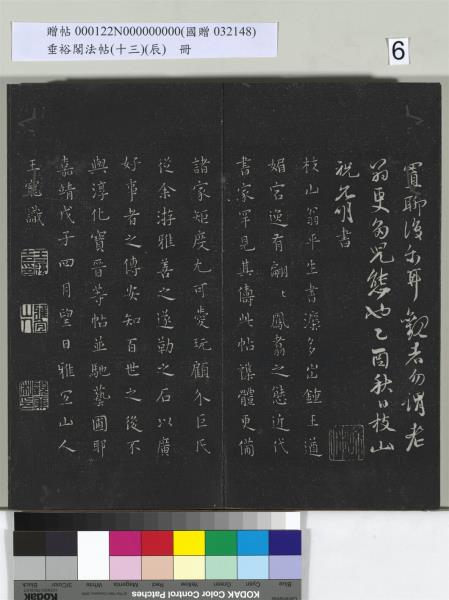 贈帖 000122N000000000(國贈 032148)
垂裕閣法帖(十三)(辰) 冊
6
置聊復爾耳觀者勿謂老
翁更為兒態也乙酉秋日枝山
祝允明書
枝山翁平生書深多出鍾王遒
媚宕逸有翩〻鳳翥之態近代
書家罕見其儔此帖諜體更備
諸家矩度尤可愛玩顧不臣氏
從余游雅善之遂勒之石以廣
好事者之傳安知百世之後不
與淳化寶晉等帖並馳藝圃耶
嘉靖戊子四月望日雅宜山人
王寵識
Blue Cyan Green Yellow Red Magenta White 3/Color Black
KODAK Color Control Patches
Kodak